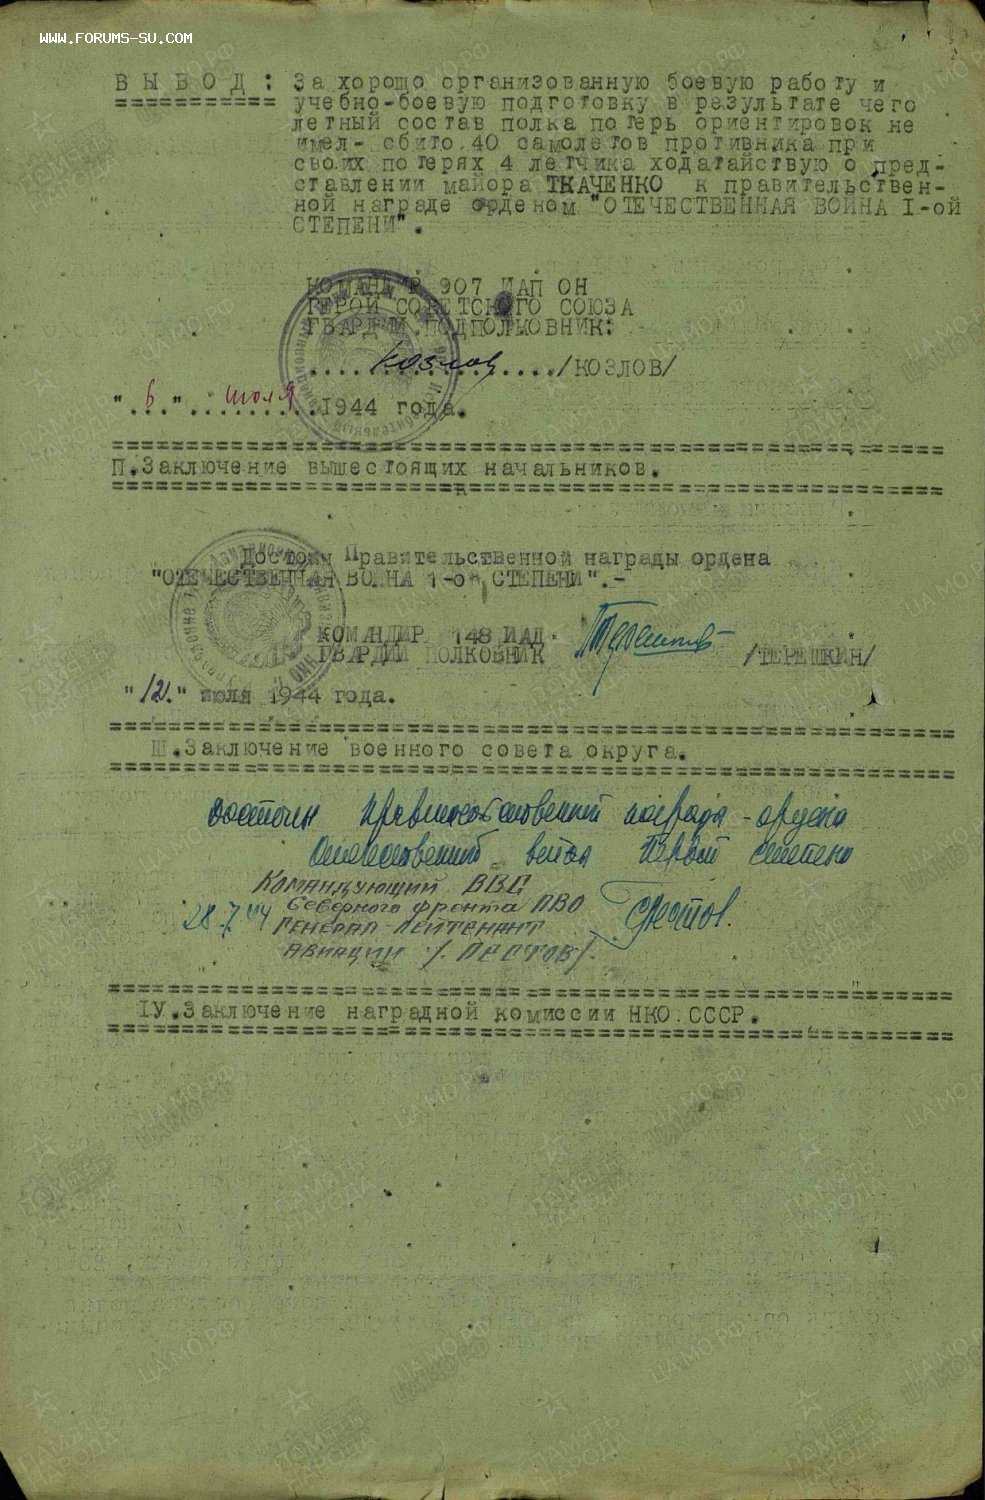 WWW.FORUMS-SU.COM
ВЫВОД: За хорошо организованную боевую работу и
учебно-боевую подготовку в результате чего
летный состав полка потерь ориентировок не
имел- сбито 40 самолетов противника при
своих потерях 4 летчика ходатайствую о пред-
ставлении майора ТКАЧЕНКО к правительствен-
ной награде орденом "ОТЕЧЕСТВЕННАЯ ВОЙНА I-ой
СТЕПЕНИ".
КОМАНДИР 907 ИАП ОН
ГЕРОЙ СОВЕТСКОГО СОЮЗА
ГВАРДИИ ПОДПОЛКОВНИК:
Козлов /КОЗЛОВ/
"6" июля 1944 года.
П.Заключение вышестоящих начальников.
Достоин Правительственной награды ордена
"ОТЕЧЕСТВЕННАЯ ВОЙНА 1-ой СТЕПЕНИ".-
КОМАНДИР 148 ИАД
ГВАРДИИ ПОЛКОВНИК /ТЕРЕШКИН/
"12." июля 1944 года.
Ш.Заключение военного совета округа.
достоин Правительственной награды - ордена
Отечественной войны Первой степени
Командующий ВВС
Северного фронта ПВО
28.7.44 Генерал-лейтенант
Авиации /.Пестов/.
IУ.Заключение наградной комиссии НКО СССР.
ПАМЯТЬ НАРОДА
ЦАМО.РФ